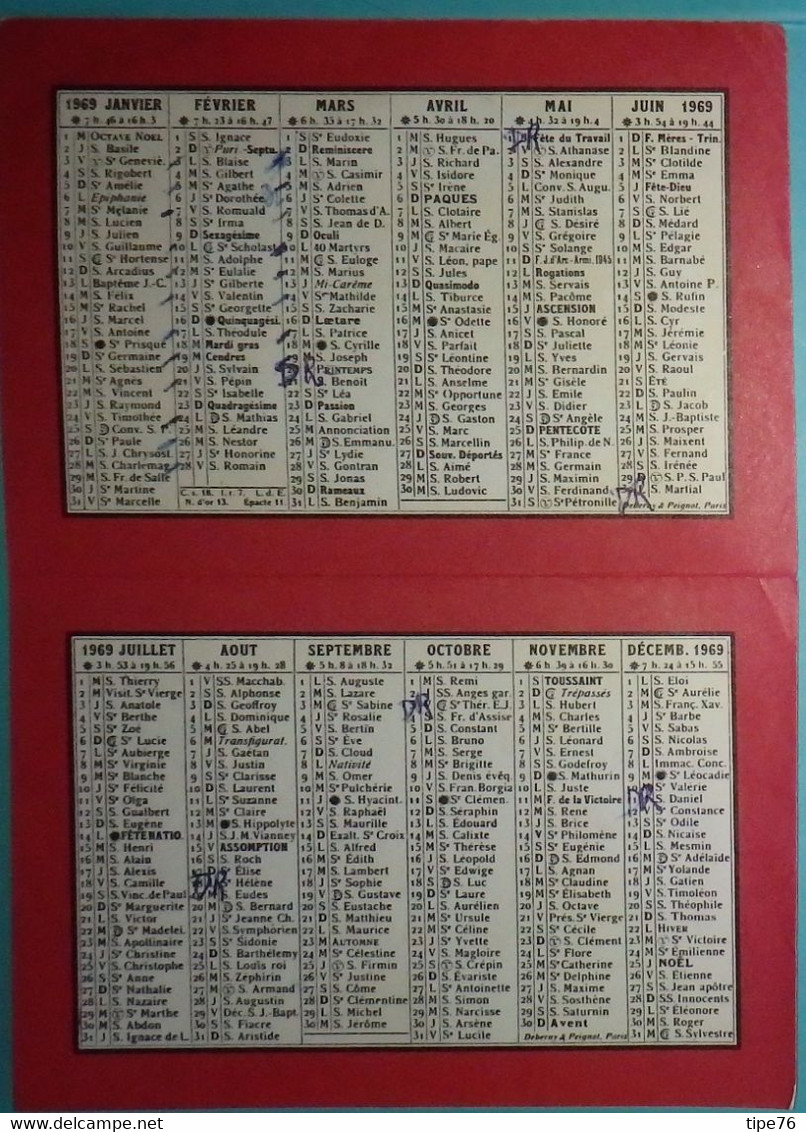 1969 JANVIER
7 h. 46 à 16 h. 3
1 M OCTAVE NOEL
2 J S. Basile
3 V Sᵉ Geneviè.
4 S S. Rigobert
5 D Sᵉ Amélie
6 L Epiphanie
7 M Sᵉ Mélanie
8 M S. Lucien
9 J S. Julien
10 V S. Guillaume
11 S Sᵉ Hortense
12 D S. Arcadius
13 L Baptême J.-C.
14 M S. Félix
15 M Sᵉ Rachel
16 J S. Marcel
17 V S. Antoine
18 S Sᵉ Prisque
19 D Sᵉ Germaine
20 L S. Sébastien
21 M Sᵉ Agnès
22 M S. Vincent
23 J S. Raymond
24 V S. Timothée
25 S Conv. S. P.
26 D Sᵉ Paule
27 L S. J. Chrysost.
28 M S. Charlemag.
29 M S. Fr. de Salle
30 J Sᵉ Martine
31 V Sᵉ Marcelle
FÉVRIER
7 h. 23 à 16 h. 47
1 S S. Ignace
2 D Puri.-Septu.
3 L S. Blaise
4 M S. Gilbert
5 M Sᵉ Agathe
6 J Sᵉ Dorothée
7 V S. Romuald
8 S Sᵉ Irma
9 D Sexagésime
10 L Sᵉ Scholast.
11 M S. Adolphe
12 M Sᵉ Eulalie
13 J Sᵉ Gilberte
14 V S. Valentin
15 S Sᵉ Georgette
16 D Quinquagési.
17 L S. Théodule
18 M Mardi gras
19 M Cendres
20 J S. Sylvain
21 V S. Pépin
22 S Sᵉ Isabelle
23 D Quadragésime
24 L S. Mathias
25 M S. Léandre
26 M S. Nestor
27 J Sᵉ Honorine
28 V S. Romain
C. s. 18. I. r. 7. L. d. E.
N. d'or 13. Épacte 11
MARS
6 h. 35 à 17 h. 32
1 S Sᵉ Eudoxie
2 D Reminiscere
3 L S. Marin
4 M S. Casimir
5 M S. Adrien
6 J Sᵉ Colette
7 V S. Thomas d'A.
8 S S. Jean de D.
9 D Oculi
10 L 40 Martyrs
11 M S. Euloge
12 M S. Marius
13 J Mi-Carême
14 V Sᵉ Mathilde
15 S S. Zacharie
16 D Lætare
17 L S. Patrice
18 M S. Cyrille
19 M S. Joseph
PRINTEMPS
21 S. Benoît
22 S Sᵉ Léa
23 D Passion
24 L S. Gabriel
25 M Annonciation
26 M S. Emmanu.
27 J Sᵉ Lydie
28 V S. Gontran
29 S S. Jonas
30 D Rameaux
31 L S. Benjamin
DR
AVRIL
5 h. 30 à 18 h. 20
1 M S. Hugues
2 M S. Fr. de Pa.
3 J S. Richard
4 V S. Isidore
5 S Sᵉ Irène
6 D PAQUES
7 L S. Clotaire
8 M S. Albert
9 M Sᵉ Marie Ég.
10 J S. Macaire
11 V S. Léon, pape
12 S S. Jules
13 D Quasimodo
14 L S. Tiburce
15 M Sᵉ Anastasie
16 M Sᵉ Odette
17 J S. Anicet
18 V S. Parfait
19 S Sᵉ Léontine
20 D S. Théodore
21 L S. Anselme
22 M Sᵉ Opportune
23 M S. Georges
24 J S. Gaston
25 V S. Marc
26 S S. Marcellin
27 D Souv. Déportés
28 L S. Aimé
29 M S. Robert
30 M S. Ludovic
MAI
4 h. 32 à 19 h. 4
DR Fête du Travail
2 V S. Athanase
3 S S. Alexandre
4 D Sᵉ Monique
5 L Conv. S. Augu.
6 M Sᵉ Judith
7 M S. Stanislas
8 J S. Désiré
9 V S. Grégoire
10 S Sᵉ Solange
11 D F. J. d'Arc-Armi. 1945
12 L Rogations
13 M S. Servais
14 M S. Pacôme
15 J ASCENSION
16 V S. Honoré
17 S S. Pascal
18 D Sᵉ Juliette
19 L S. Yves
20 M S. Bernardin
21 M Sᵉ Gisèle
22 J S. Emile
23 V S. Didier
24 S Sᵉ Angèle
25 D PENTECÔTE
26 L S. Philip. de N.
27 M Sᵉ France
28 M S. Germain
29 J S. Maximin
30 V S. Ferdinand
31 S Sᵉ Pétronille
JUIN 1969
3 h. 54 à 19 h. 44
1 D F. Mères - Trin.
2 L Sᵉ Blandine
3 M Sᵉ Clotilde
4 M Sᵉ Emma
5 J Fête-Dieu
6 V S. Norbert
7 S S. Lié
8 D S. Médard
9 L Sᵉ Pélagie
10 M S. Edgar
11 M S. Barnabé
12 J S. Guy
13 V S. Antoine P.
14 S S. Rufin
15 D S. Modeste
16 L S. Cyr
17 M S. Jérémie
18 M Sᵉ Léonie
19 J S. Gervais
20 V S. Raoul
21 S ÉTÉ
22 D S. Paulin
23 L S. Jacob
24 M S. J.-Baptiste
25 M S. Prosper
26 J S. Maixent
27 V S. Fernand
28 S S. Irénée
29 D S. P. S. Paul
DR S. Martial
Deberny & Peignot, Paris
1969 JUILLET
3 h. 53 à 19 h. 56
1 M S. Thierry
2 M Visit. Sᵉ Vierge
3 J S. Anatole
4 V Sᵉ Berthe
5 S Sᵉ Zoé
6 D Sᵉ Lucie
7 L Sᵉ Aubierge
8 M Sᵉ Virginie
9 M Sᵉ Blanche
10 J Sᵉ Félicité
11 V Sᵉ Olga
12 S S. Gualbert
13 D S. Eugène
14 L FÊTE NATIO.
15 M S. Henri
16 M S. Alain
17 J S. Alexis
18 V S. Camille
19 S S. Vinc. de Paul
20 D Sᵉ Marguerite
21 L S. Victor
22 M Sᵉ Madelei.
23 M S. Apollinaire
24 J Sᵉ Christine
25 V S. Christophe
26 S Sᵉ Anne
27 D Sᵉ Nathalie
28 L S. Nazaire
29 M Sᵉ Marthe
30 M S. Abdon
31 J S. Ignace de L.
AOUT
4 h. 25 à 19 h. 28
1 V SS. Macchab.
2 S S. Alphonse
3 D S. Geoffroy
4 L S. Dominique
5 M S. Abel
6 M Transfigurat.
7 J S. Gaëtan
8 V S. Justin
9 S Sᵉ Clarisse
10 D S. Laurent
11 L Sᵉ Suzanne
12 M Sᵉ Claire
13 M S. Hippolyte
14 J S. J. M. Vianney
15 V ASSOMPTION
16 S S. Roch
DR Élise
18 Sᵉ Hélène
19 M S. Eudes
20 M S. Bernard
21 J Sᵉ Jeanne Ch.
22 V S. Symphorien
23 S Sᵉ Sidonie
24 D S. Barthélemy
25 L S. Louis roi
26 M S. Zéphirin
27 M S. Armand
28 J S. Augustin
29 V Déc. S. J.-Bapt.
30 S S. Fiacre
31 D S. Aristide
SEPTEMBRE
5 h. 8 à 18 h. 32
1 L S. Auguste
2 M S. Lazare
3 M Sᵉ Sabine
4 J Sᵉ Rosalie
5 V S. Bertin
6 S Sᵉ Ève
7 D S. Cloud
8 L Nativité
9 M S. Omer
10 M Sᵉ Pulchérie
11 J S. Hyacint.
12 V S. Raphaël
13 S S. Maurille
14 D Exalt. Sᵉ Croix
15 L S. Alfred
16 M Sᵉ Édith
17 M S. Lambert
18 J Sᵉ Sophie
19 V S. Gustave
20 S S. Eustache
21 D S. Matthieu
22 L S. Maurice
23 M AUTOMNE
24 M Sᵉ Célestine
25 J S. Firmin
26 V Sᵉ Justine
27 S S. Côme
28 D Sᵉ Clémentine
29 L S. Michel
30 M S. Jérôme
OCTOBRE
5 h. 51 à 17 h. 29
1 M S. Remi
2 SS. Anges gar.
DR Sᵉ Thér. E.J.
4 S S. Fr. d'Assise
5 D S. Constant
6 L S. Bruno
7 M S. Serge
8 M Sᵉ Brigitte
9 J S. Denis évêq
10 V S. Fran. Borgia
11 S S. Clémen.
12 D S. Séraphin
13 L S. Édouard
14 M S. Calixte
15 M Sᵉ Thérèse
16 J S. Léopold
17 V Sᵉ Edwige
18 S S. Luc
19 D Sᵉ Laure
20 L S. Aurélien
21 M Sᵉ Ursule
22 M Sᵉ Céline
23 J Sᵉ Yvette
24 V S. Magloire
25 S S. Crépin
26 D S. Évariste
27 L Sᵉ Antoinette
28 M S. Simon
29 M S. Narcisse
30 J S. Arsène
31 V Sᵉ Lucile
NOVEMBRE
6 h. 39 à 16 h. 30
1 S TOUSSAINT
2 D Trépassés
3 L S. Hubert
4 M S. Charles
5 M Sᵉ Bertille
6 J S. Léonard
7 V S. Ernest
8 S S. Godefroy
9 D S. Mathurin
10 L S. Juste
11 M F. de la Victoire
12 M S. René
13 J S. Brice
14 V Sᵉ Philomène
15 S Sᵉ Eugénie
16 D S. Edmond
17 L S. Agnan
18 M Sᵉ Claudine
19 M Sᵉ Élisabeth
20 J S. Octave
21 V Prés. Sᵉ Vierge
22 S Sᵉ Cécile
23 D S. Clément
24 L Sᵉ Flore
25 M Sᵉ Catherine
26 M Sᵉ Delphine
27 J S. Maxime
28 V S. Sosthène
29 S S. Saturnin
30 D Avent
Deberny & Peignot, Paris
DÉCEMB. 1969
7 h. 24 à 15 h. 55
1 L S. Eloi
2 M Sᵉ Aurélie
3 M S. Franç. Xav.
4 J Sᵉ Barbe
5 V S. Sabas
6 S S. Nicolas
7 D S. Ambroise
8 L Immac. Conc.
9 M Sᵉ Léocadie
10 M Sᵉ Valérie
DR S. Daniel
12 V Sᵉ Constance
13 S Sᵉ Odile
14 D S. Nicaise
15 L S. Mesmin
16 M Sᵉ Adélaïde
17 M Sᵉ Yolande
18 J S. Gatien
19 V S. Timoléon
20 S S. Théophile
21 D S. Thomas
22 L HIVER
23 M Sᵉ Victoire
24 M Sᵉ Émilienne
25 J NOËL
26 V S. Étienne
27 S S. Jean apôtre
28 D SS. Innocents
29 L Sᵉ Éléonore
30 M S. Roger
31 M S. Sylvestre
www.delcampe.net
tipe76